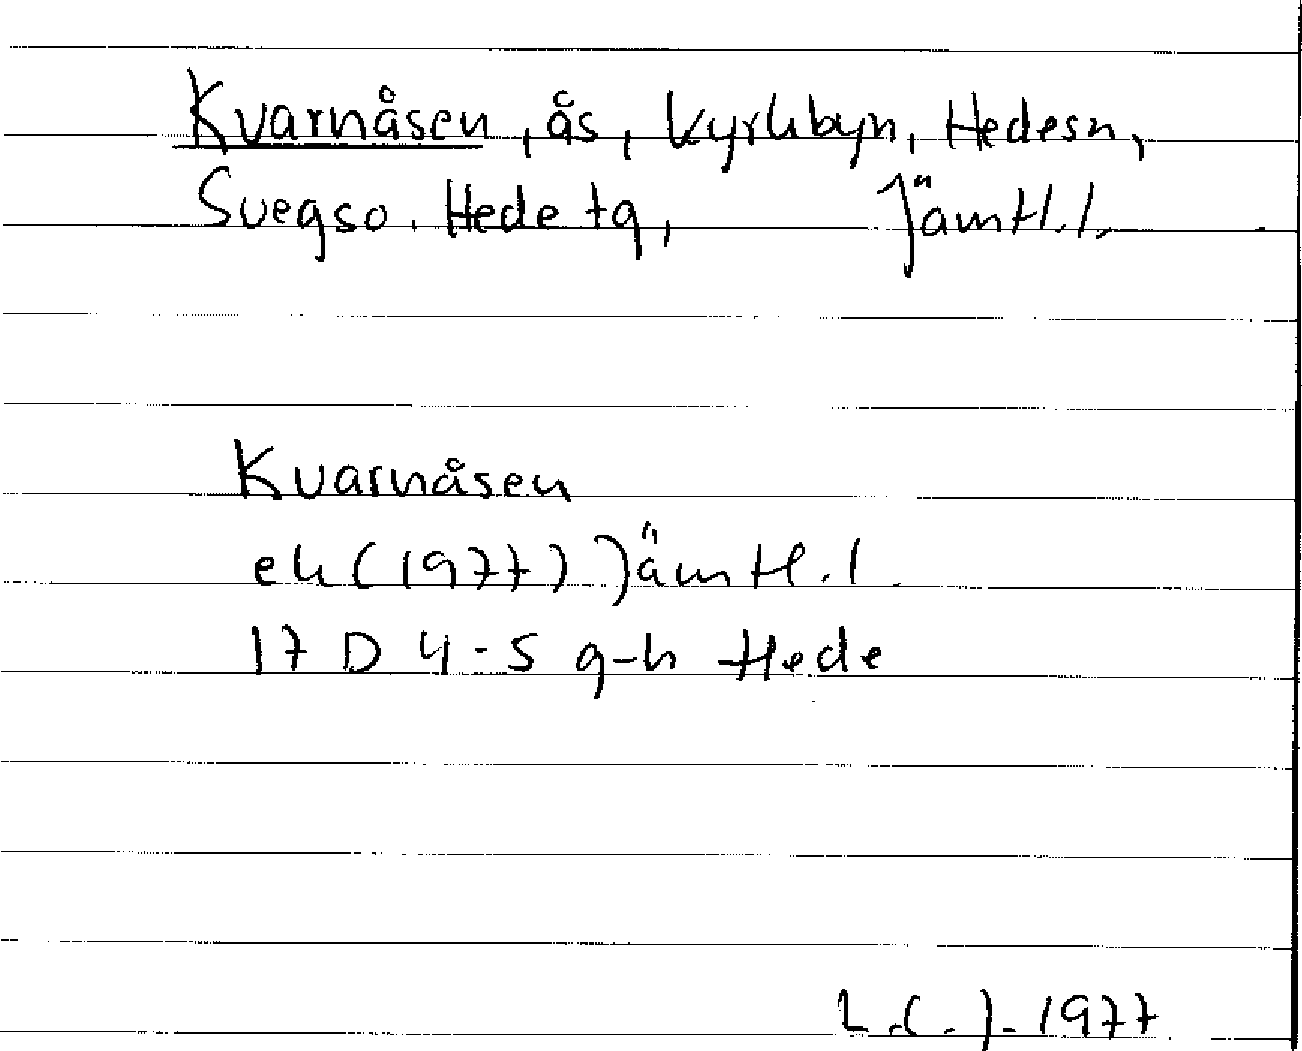 Kvarnåsen, ås, Kyrkbyn, Hedesn,
Svegso. Hede tg, Jämtl.l.
Kvarnåsen
ek (1977) Jämtl.l.
17 D 4-5 g-h Hede
L.C.J. 1977